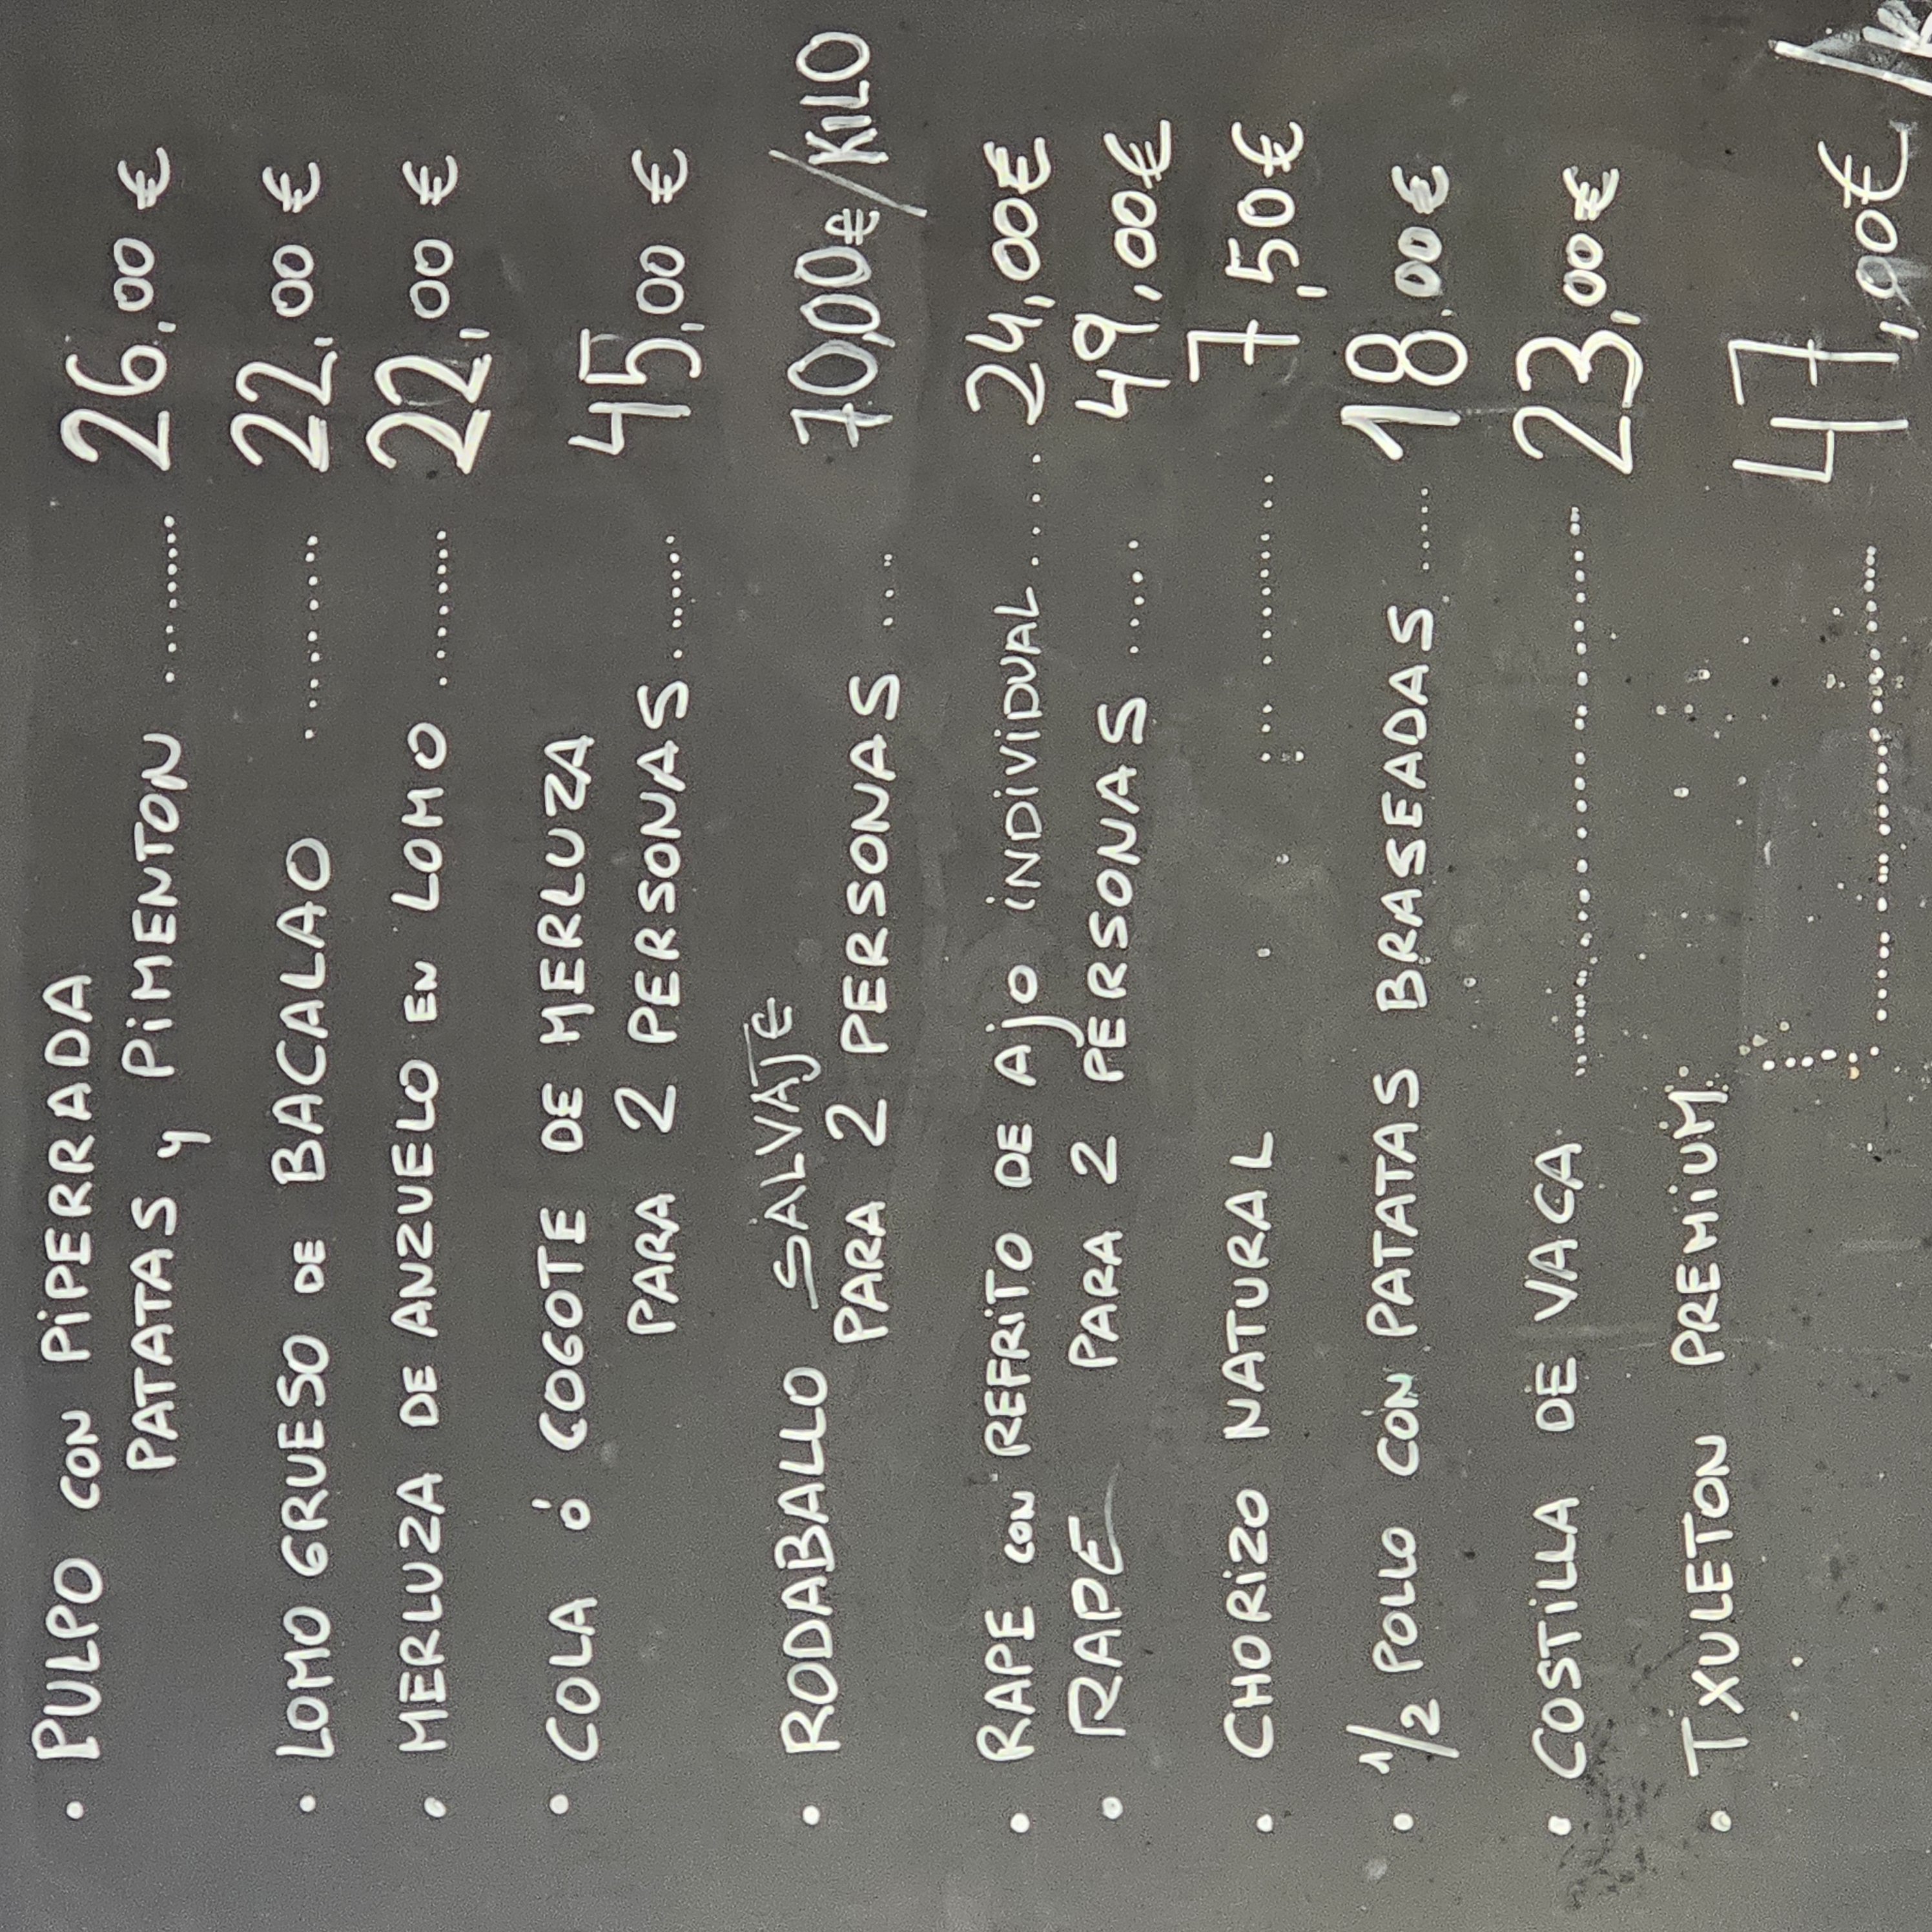 • PULPO CON PIPERRADA
PATATAS y PIMENTON ......... 26,00 €
• LOMO GRUESO DE BACALAO .......... 22,00 €
• MERLUZA DE ANZUELO EN LOMO ......... 22,00 €
• COLA ó COGOTE DE MERLUZA
PARA 2 PERSONAS ....... 45,00 €
• RODABALLO SALVAJE
PARA 2 PERSONAS .... 70,00€/KILO
• RAPE CON REFRITO DE AJO INDIVIDUAL .... 24,00€
• RAPE PARA 2 PERSONAS ...... 49,00€
• CHORIZO NATURAL ............ 7,50€
• 1/2 POLLO CON PATATAS BRASEADAS ...... 18.00€
• COSTILLA DE VACA .............................. 23,00€
• TXULETON PREMIUM
.............................. 47,00€